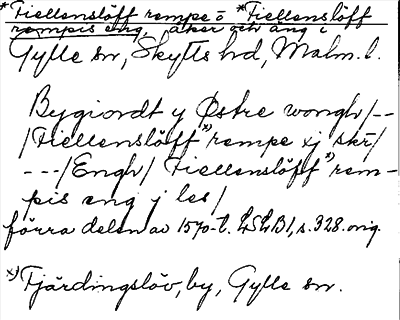 *Fiellenslöff rempe o *Fiellenslöff
rempis eng, åker och äng i
Gylle sn, Skytts hd, Malm. l.
Bygiordt y Østre wongh/--
/Fiellenslöff x) rempe xj skr/
---/Engh/ Fiellenslöff x) rem-
pis eng j les/
förra delen av 1570-t. LSLB1, s. 328. orig.
x) Fjärdingslöv, by, Gylle sn.